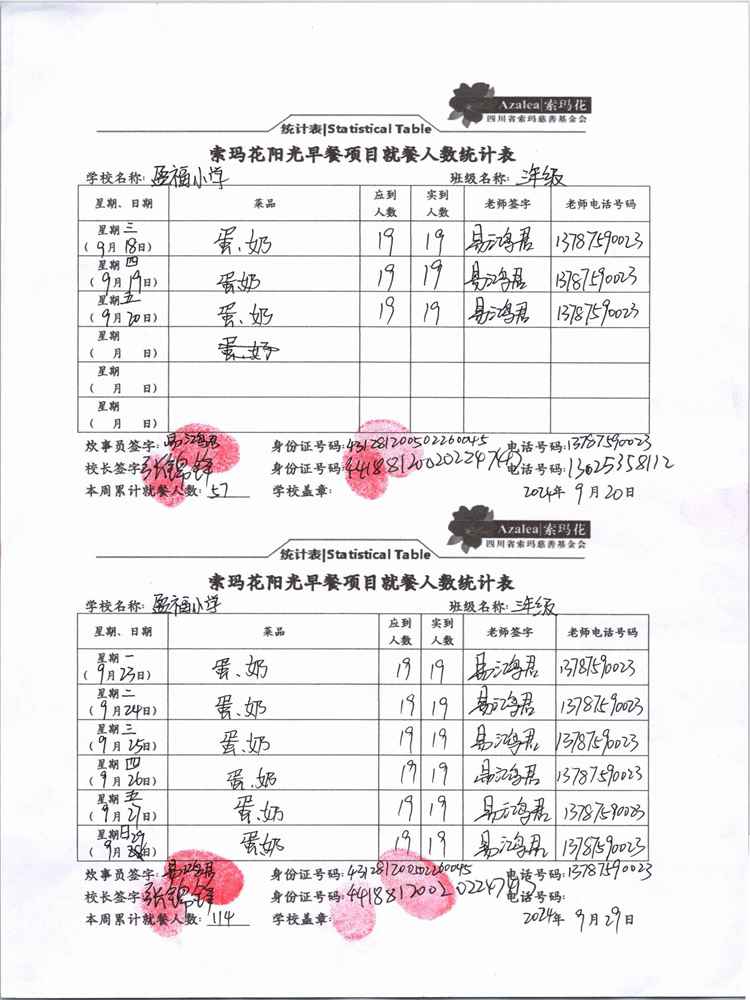 Azalea|索玛花
四川省索玛慈善基金会
统计表|Statistical Table
索玛花阳光早餐项目就餐人数统计表
学校名称：盈福小学 班级名称：三年级
星期、日期 菜品 应到人数 实到人数 老师签字 老师电话号码
星期三（9月18日） 蛋、奶 19 19 易鸿君 13787590023
星期四（9月19日） 蛋、奶 19 19 易鸿君 13787590023
星期五（9月20日） 蛋、奶 19 19 易鸿君 13787590023
星期（ 月 日） 蛋、奶
星期（ 月 日）
星期（ 月 日）
炊事员签字：易鸿君 身份证号码：431281200502260045 电话号码：13787590023
校长签字：张锦锋 身份证号码： 电话号码：13025358112
本周累计就餐人数：57 学校盖章： 2024年9月20日
Azalea|索玛花
四川省索玛慈善基金会
统计表|Statistical Table
索玛花阳光早餐项目就餐人数统计表
学校名称：盈福小学 班级名称：三年级
星期、日期 菜品 应到人数 实到人数 老师签字 老师电话号码
星期一（9月23日） 蛋、奶 19 19 易鸿君 13787590023
星期二（9月24日） 蛋、奶 19 19 易鸿君 13787590023
星期三（9月25日） 蛋、奶 19 19 易鸿君 13787590023
星期四（9月26日） 蛋、奶 19 19 易鸿君 13787590023
星期五（9月27日） 蛋、奶 19 19 易鸿君 13787590023
星期日（9月29日） 蛋、奶 19 19 易鸿君 13787590023
炊事员签字：易鸿君 身份证号码：431281200502260045 电话号码：13787590023
校长签字：张锦锋 身份证号码： 电话号码：
本周累计就餐人数：114 学校盖章： 2024年9月29日